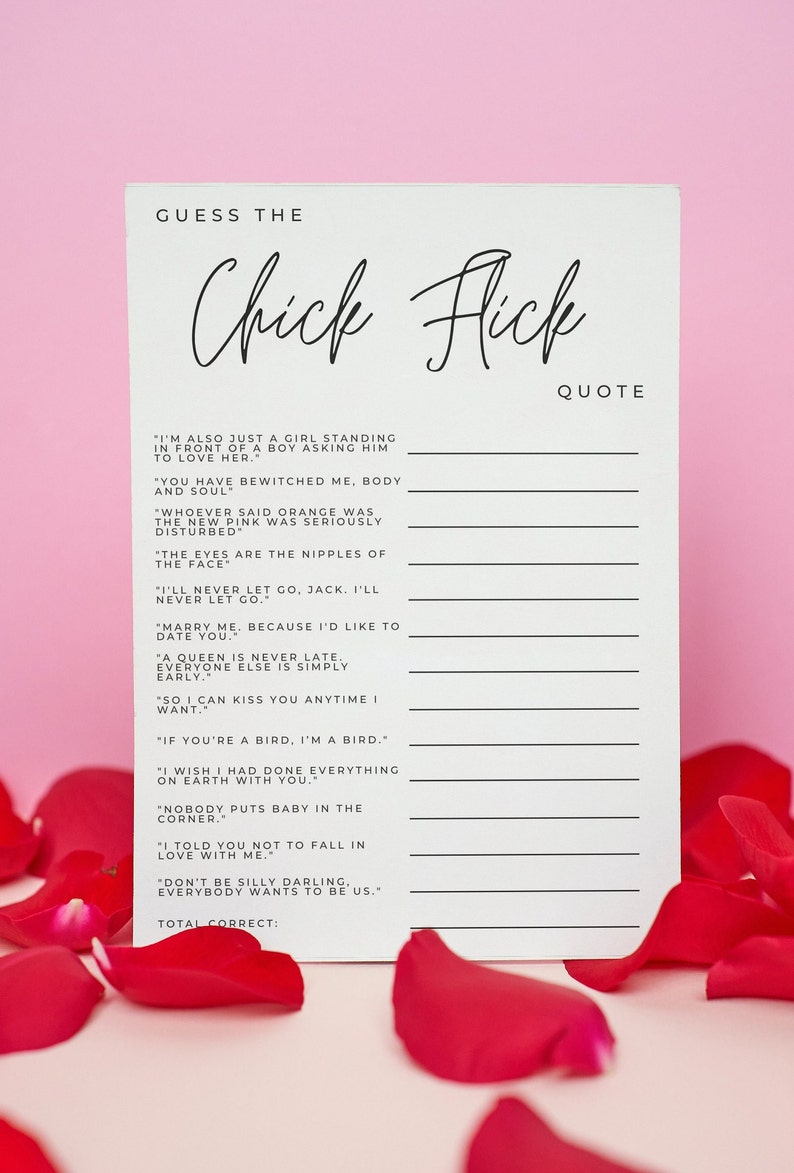 GUESS THE
Chick Flick
QUOTE
"I'M ALSO JUST A GIRL STANDING
IN FRONT OF A BOY ASKING HIM
TO LOVE HER."
"YOU HAVE BEWITCHED ME, BODY
AND SOUL"
"WHOEVER SAID ORANGE WAS
THE NEW PINK WAS SERIOUSLY
DISTURBED"
"THE EYES ARE THE NIPPLES OF
THE FACE"
"I'LL NEVER LET GO, JACK. I'LL
NEVER LET GO."
"MARRY ME. BECAUSE I'D LIKE TO
DATE YOU."
"A QUEEN IS NEVER LATE.
EVERYONE ELSE IS SIMPLY
EARLY."
"SO I CAN KISS YOU ANYTIME I
WANT."
"IF YOU’RE A BIRD, I’M A BIRD."
"I WISH I HAD DONE EVERYTHING
ON EARTH WITH YOU."
"NOBODY PUTS BABY IN THE
CORNER."
"I TOLD YOU NOT TO FALL IN
LOVE WITH ME."
"DON’T BE SILLY DARLING,
EVERYBODY WANTS TO BE US."
TOTAL CORRECT: